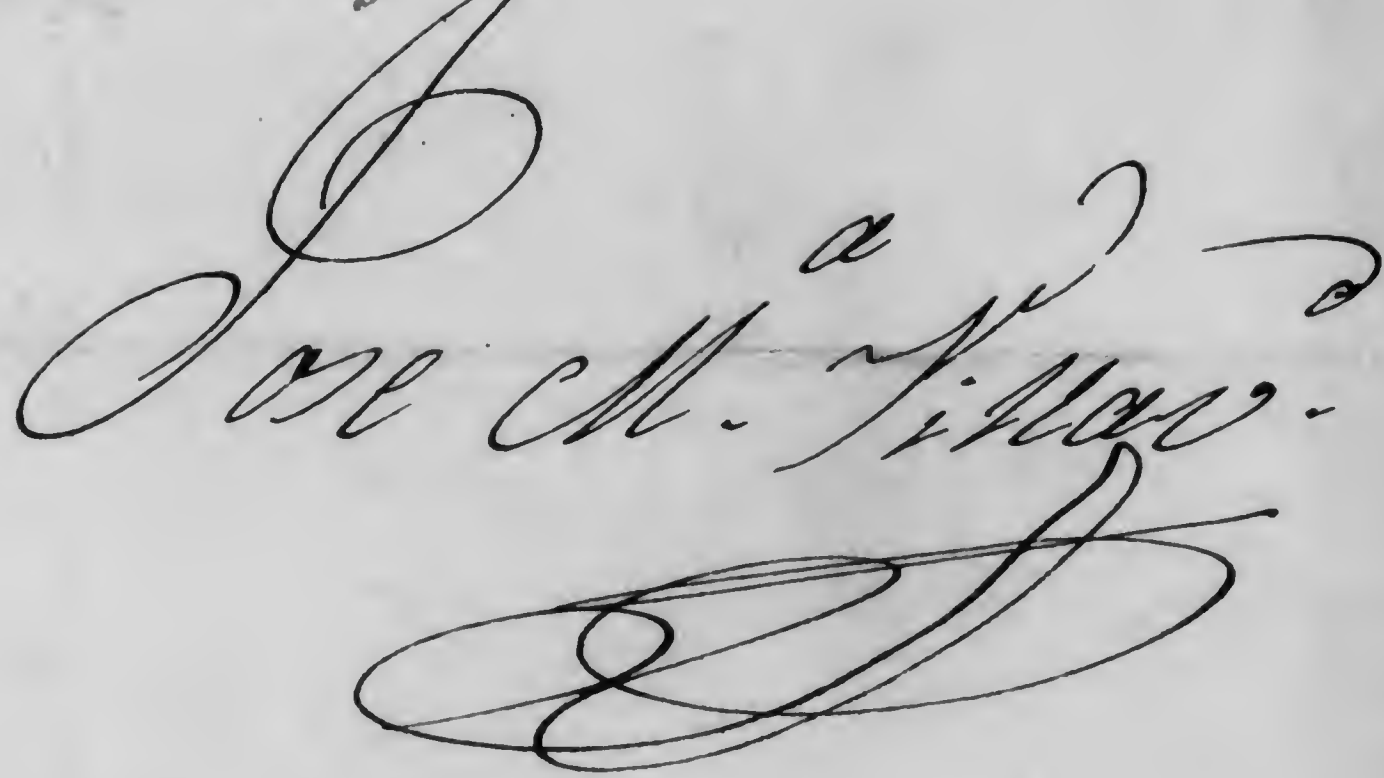 Jose M.ª Villav.º